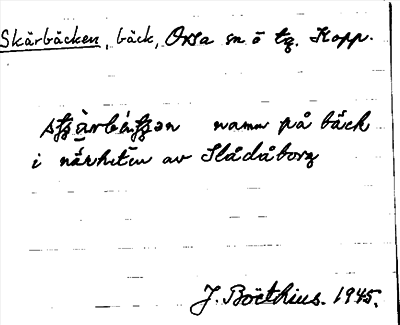 Skärbäcken, bäck, Orsa sn ö tg. Kopp.
namn på bäck
i närheten av Slådåborg
J. Boëthius. 1945.